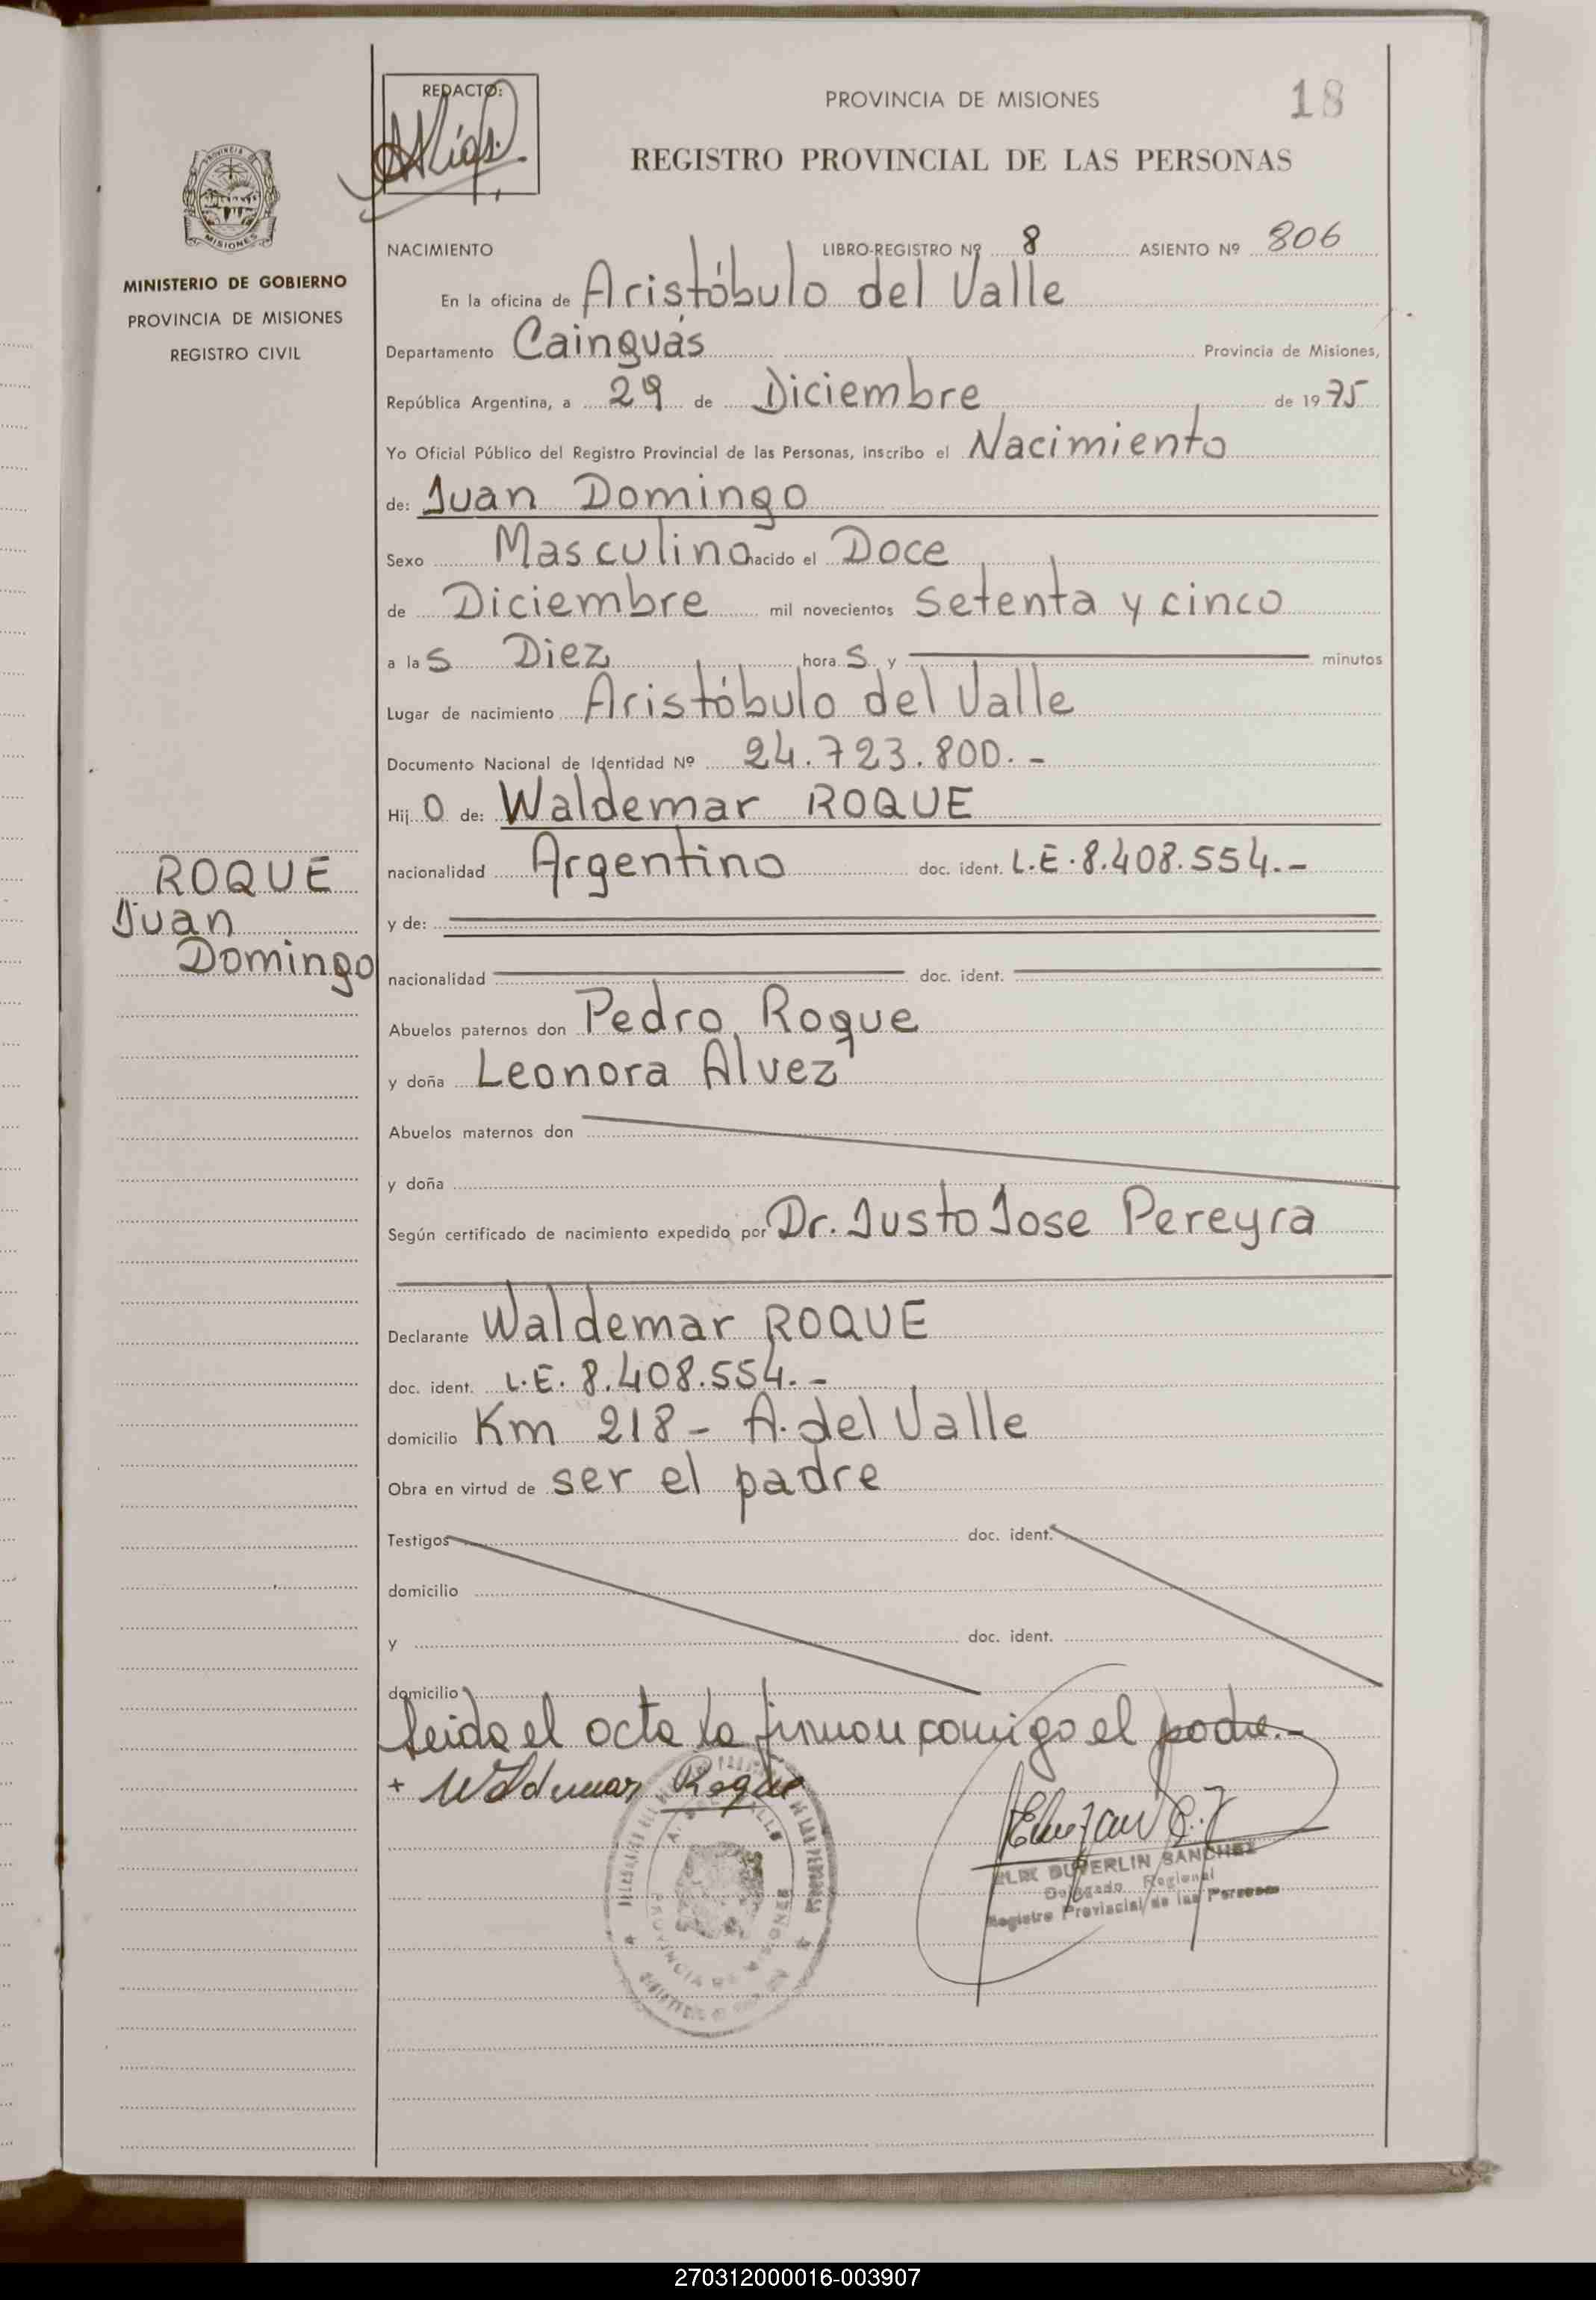 REDACTO:
PROVINCIA DE MISIONES
18
REGISTRO PROVINCIAL DE LAS PERSONAS
MINISTERIO DE GOBIERNO
PROVINCIA DE MISIONES
REGISTRO CIVIL
NACIMIENTO LIBRO-REGISTRO Nº 8 ASIENTO Nº 806
En la oficina de Aristóbulo del Valle
Departamento Cainguás Provincia de Misiones,
República Argentina, a 29 de Diciembre de 1975
Yo Oficial Público del Registro Provincial de las Personas, inscribo el Nacimiento
de: Juan Domingo
Sexo Masculino nacido el Doce
de Diciembre mil novecientos setenta y cinco
a las Diez horas y minutos
Lugar de nacimiento Aristóbulo del Valle
Documento Nacional de Identidad Nº 24.723.800.-
Hijo de: Waldemar ROQUE
nacionalidad Argentino doc. ident. L.E. 8.408.554.-
y de:
nacionalidad doc. ident.
ROQUE
Juan
Domingo
Abuelos paternos don Pedro Roque
y doña Leonora Alvez
Abuelos maternos don
y doña
Según certificado de nacimiento expedido por Dr. Justo Jose Pereyra
Declarante Waldemar ROQUE
doc. ident. L.E. 8.408.554.-
domicilio Km 218 - A. del Valle
Obra en virtud de ser el padre
Testigos doc. ident.
domicilio
y doc. ident.
domicilio
Leida el acta la firman comigo el padre.-
+ Waldemar Roque
DUVERLIN SANCHEZ
Delegado Regional
Registro Provincial de las Personas
270312000016-003907